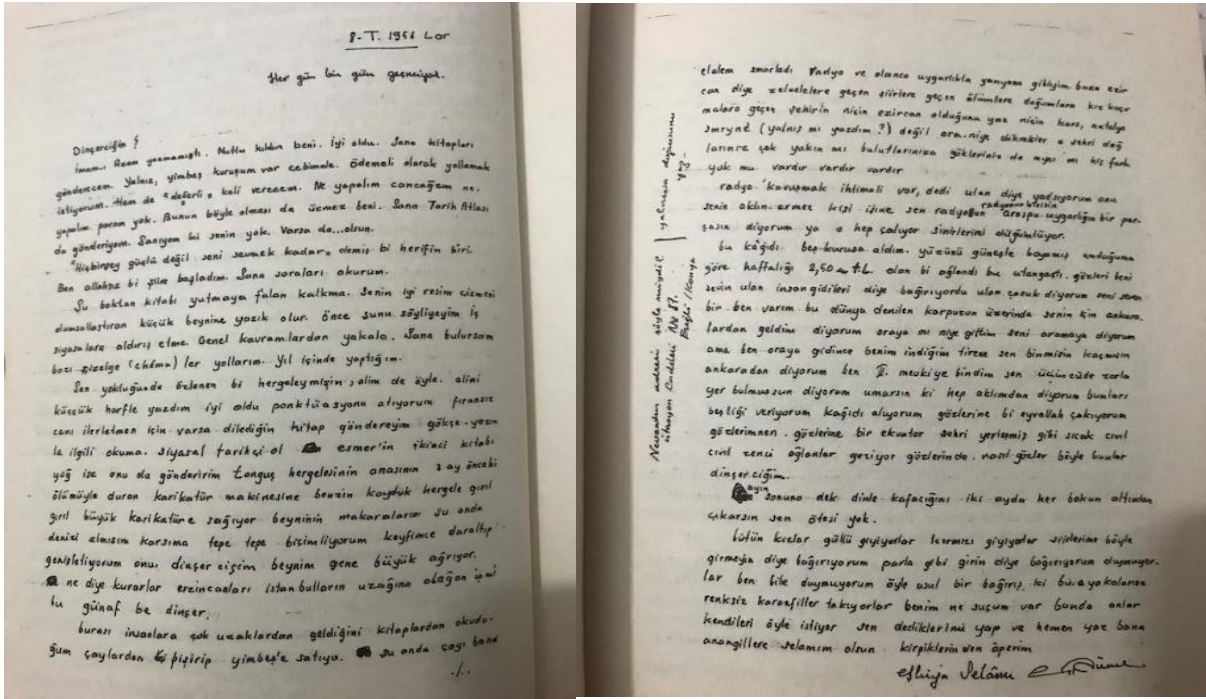 8-T. 1956 Lor
Her gün bin gün geçmiyor.
Dinçerciğim
İmam. Rıza yazmamıştı. Mutlu kıldın beni. İyi oldu. Sana kitapları
göndercem. Yalnız, yimbeş kuruşum var cebimde. Ödemeli olarak yollamak
istiyorum. Hem de "değerli" koli verecem. Ne yapalım cancağzım ne.
yapalım param yok. Bunun böyle olması da üzmez beni. Sana Tarih Atlası
da gönderiyom. Sanıyom ki senin yok. Varsa da...olsun.
"Hiçbirşey güçlü değil seni sevmek kadar" demiş bi herifin biri.
Ben allahsız bi şiire başladım. Sana soraları okurum.
Şu boktan kitabı yutmaya falan kalkma. Senin iyi resim çizmeni
olumsallaştıran küçük beynine yazık olur. önce şunu söyliyeyim iç
siyasalara aldırış etme. Genel kavramlardan yakala. Sana bulursam
bazı çizelge (chéma) ler yollarım. Yıl içinde yaptığım.
Sen yokluğunda özlenen bi hergeleymişin alim de öyle. alini
küççük horfle yazdım iyi oldu ponktüasyonu atıyorum fıransız
canı ilerletmen için varsa dilediğin kitap göndereyim gökçe-yazın
la ilgili okuma. siyasal tarihçi ol esmer'in ikinci kitabı
yoğ ise onu da gönderirim tonguş hergelesinin anasının 2 ay önceki
ölümüyle duran karikatür makinesine benzin koyduk hergele gırıl
gırıl büyük karikatüre sağıyor beyninin makaralarını şu anda
denizi almışım karşıma tepe tepe biçimliyorum keyfimce daraltıp
genişletiyorum onu dinçerciğim beynim gene büyük ağrıyor.
ne diye kurarlar erzincanları istanbulların uzağına olağan işmi
bu günaf be dinçer.
burası insanlara çok uzaklardan geldiğini kitaplardan okudu-
ğum çaylardan pişirip yimbeş'e satıyo. şu anda çayı bana
./.
elalem ısmarladı radyo ve olanca uygarlıkla yanyana gibiyim. bana ezir
can diye zelzelelere geçen şiirlere geçen ölümlere doğumlara kız kaçır
malara geçen şehirin niçin ezircan olduğunu yaz niçin kars, antalya
smryné (yalnış mı yazdım?) değil ora. niye dikmişler o şehri dağ
larınız çok yakın mı bulutlarınıza göklerinin de ayısı mı hiç fark
yok mu vardır vardır vardır
radyo "kavuşmak ihtimali var, dedi ulan diye yadsıyorum onu
senin aklın ermez kişi işine sen radyosun orospu uygarlığın bir par-
çasın diyorum ya o hep çalıyor sinirlerini düğümlüyor.
bu kağıdı beş kuruşa aldım. yüzünü güneşle boyamış sanduğuma
göre haftalığı 2,50 TL olan bi oğlandı bu utangaçtı. gözleri beni
sevin ulan insangidileri diye bağırıyordu ulan çocuk diyorum seni seven
bir ben varım bu dünya denilen karpuzun üzerinde senin için ankara.
lardan geldim diyorum oraya mı niye gittim seni aramaya diyorum
ama ben oraya gidince benim indiğim tirene sen binmişin kaçmışın
ankaradan diyorum ben II. mevkiye bindim sen üçüncüde zorla
yer bulmuşsun diyorum umarsın ki hep aklımdan diyorum bunları
beşliği veriyorum kağıdı alıyorum gözlerine bi eyvallah çakıyorum
gözlerimnen. gözlerine bir ekvator şehri yerleşmiş gibi sıcak cıvıl
cıvıl zenci oğlanlar geziyor gözlerinde. nasıl gözler böyle bunlar
dinçerciğim.
ayın sonuna dek dinle kafacığını iki ayda her bokun altından
çıkarsın sen ötesi yok.
bütün kızlar güllü giyiyorlar kırmızı giyiyorlar şiirlerime böyle
girmeyin diye bağırıyorum parla gibi girin diye bağırıyorum duymuyor.
lar ben bile duymuyorum öyle usul bir bağırış ki bu yakalarına
renksiz karanfiller takıyorlar benim ne suçum var bunda onlar
kendileri öyle istiyor sen dediklerimi yap ve hemen yaz bana
anangillere selamım olsun kirpiklerinden öperim
Nevzatın adresi şöyle miydi?
İstasyon Caddesi No 87.
Ereğli / Konya
yalnışsa doğrusunu
yaz.